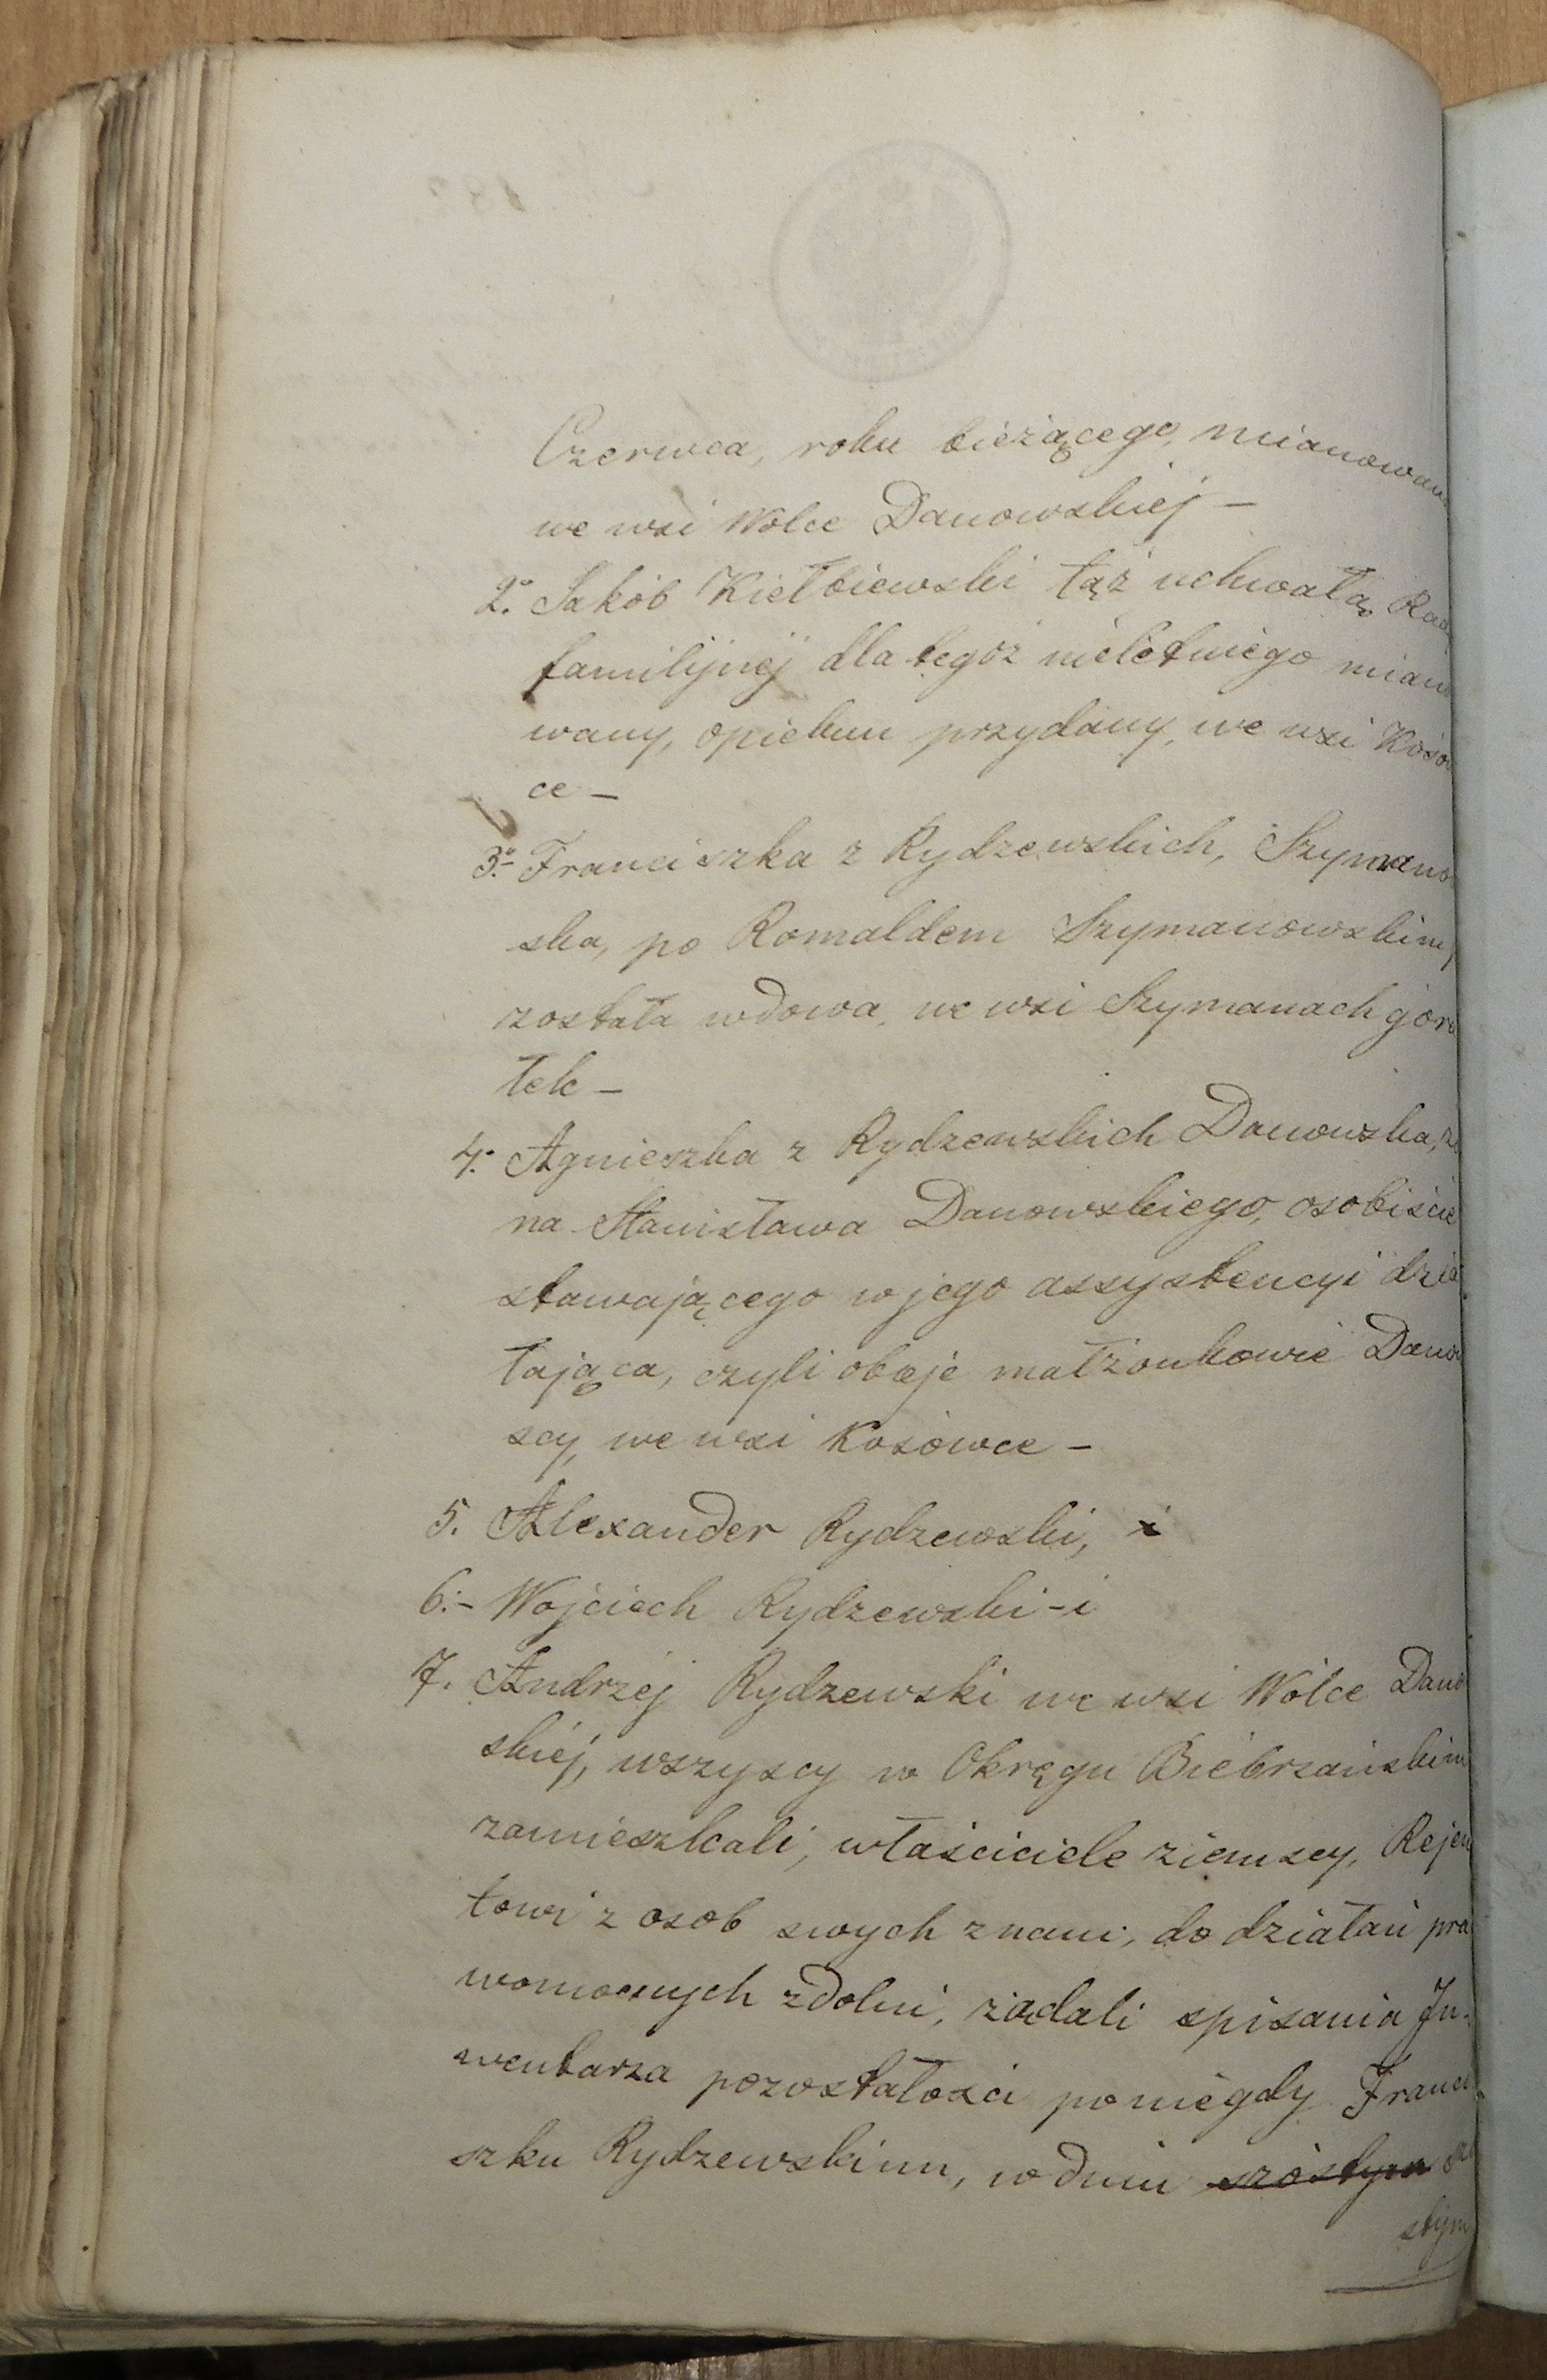 Czerwca, roku bieżącego, mianowan
we wsi Wolce Danowskiej —
2.° Jakób Kiełbiewski tąż uchwałą Rad
familijnej dla tegoż nieletniego miano
wany, opiekun przydany, we wsi Kosów
ce —
3.° Franciszka z Rydzewskich, Szymano
ska, po Romaldem Szymanowskim,
została wdowa, we wsi Szymanach gór
tele —
4.° Agnieszka z Rydzewskich Danowska, żo
na Stanisława Danowskiego, osobiście
stawającego w jego assystencyi dzia
łająca, czyli oboje małżonkowie Dano
scy, we wsi Kosówce —
5. Alexander Rydzewski, i
6.- Wojciech Rydzewski - i
7. Andrzej Rydzewski we wsi Wólce Dano
skiej, wszyscy w Okręgu Biebrzańskim
zamieszkali, właściciele ziemscy, Rejen
towi z osob swych znani, do działań pra
womocnych zdolni, żądali spisania In-
wentarza pozostałości po niegdy Franci
szku Rydzewskim, w dniu szóstym
stym